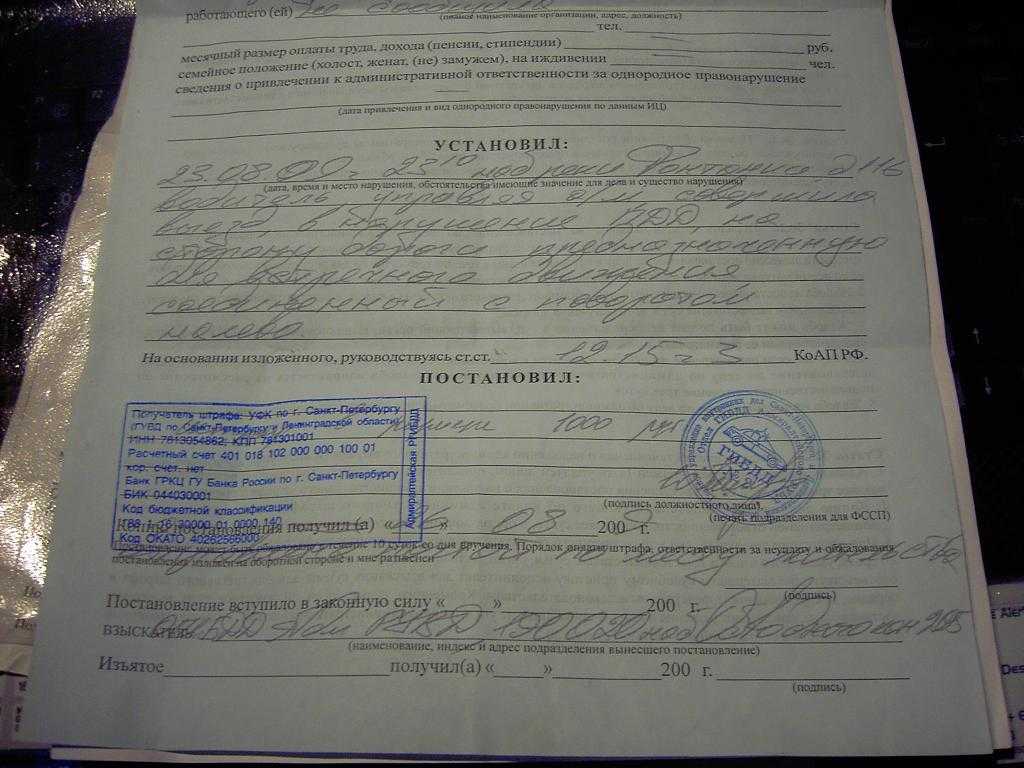 работающего (ей) не сообщила
(полное наименование организации, адрес, должность)
тел.
месячный размер оплаты труда, дохода (пенсии, стипендии) руб.
семейное положение (холост, женат, (не) замужем), на иждивении чел.
сведения о привлечении к административной ответственности за однородное правонарушение
(дата привлечения и вид однородного правонарушения по данным ИЦ)
УСТАНОВИЛ:
23.08.09 г. 23 10 наб реки Фонтанка д 116
(дата, время и место нарушения, обстоятельства имеющие значение для дела и существо нарушения)
водитель управляя а/м совершила
выезд в нарушение ПДД, на
сторону дороги предназначенную
для встречного движения
соединенный с поворотом
налево
На основании изложенного, руководствуясь ст.ст. 12.15 ч 3 КоАП РФ.
ПОСТАНОВИЛ:
Получатель штрафа: УФК по г. Санкт-Петербургу
(ГУВД по Санкт-Петербургу и Ленинградской области)
ИНН 7813054862, КПП 781301001
Расчетный счет 401 018 102 000 000 100 01
кор. счет. нет
Банк ГРКЦ ГУ Банка России по г. Санкт-Петербургу
БИК 044030001
Код бюджетной классификации
188 1 16 30000 01 0000 140
Код ОКАТО 40262566000
Адмиралтейская РГИБДД
1000 руб
ГИБДД
(подпись должностного лица)
(печать подразделения для ФССП)
Копию постановления получил (а) «26» 08 200 г.
Постановление может быть обжаловано в течение 10 суток со дня вручения. Порядок оплаты штрафа, ответственности за неуплату и обжалования
постановления изложен на оборотной стороне и мне разъяснен
по месту жительства
(подпись)
Постановление вступило в законную силу « » 200 г.
ВЗЫСКАТЕЛЬ ОГИБДД Адм РУВД 190020 наб Обводного кан
(наименование, индекс и адрес подразделения вынесшего постановление)
Изъятое получил(а) « » 200 г.
(подпись)